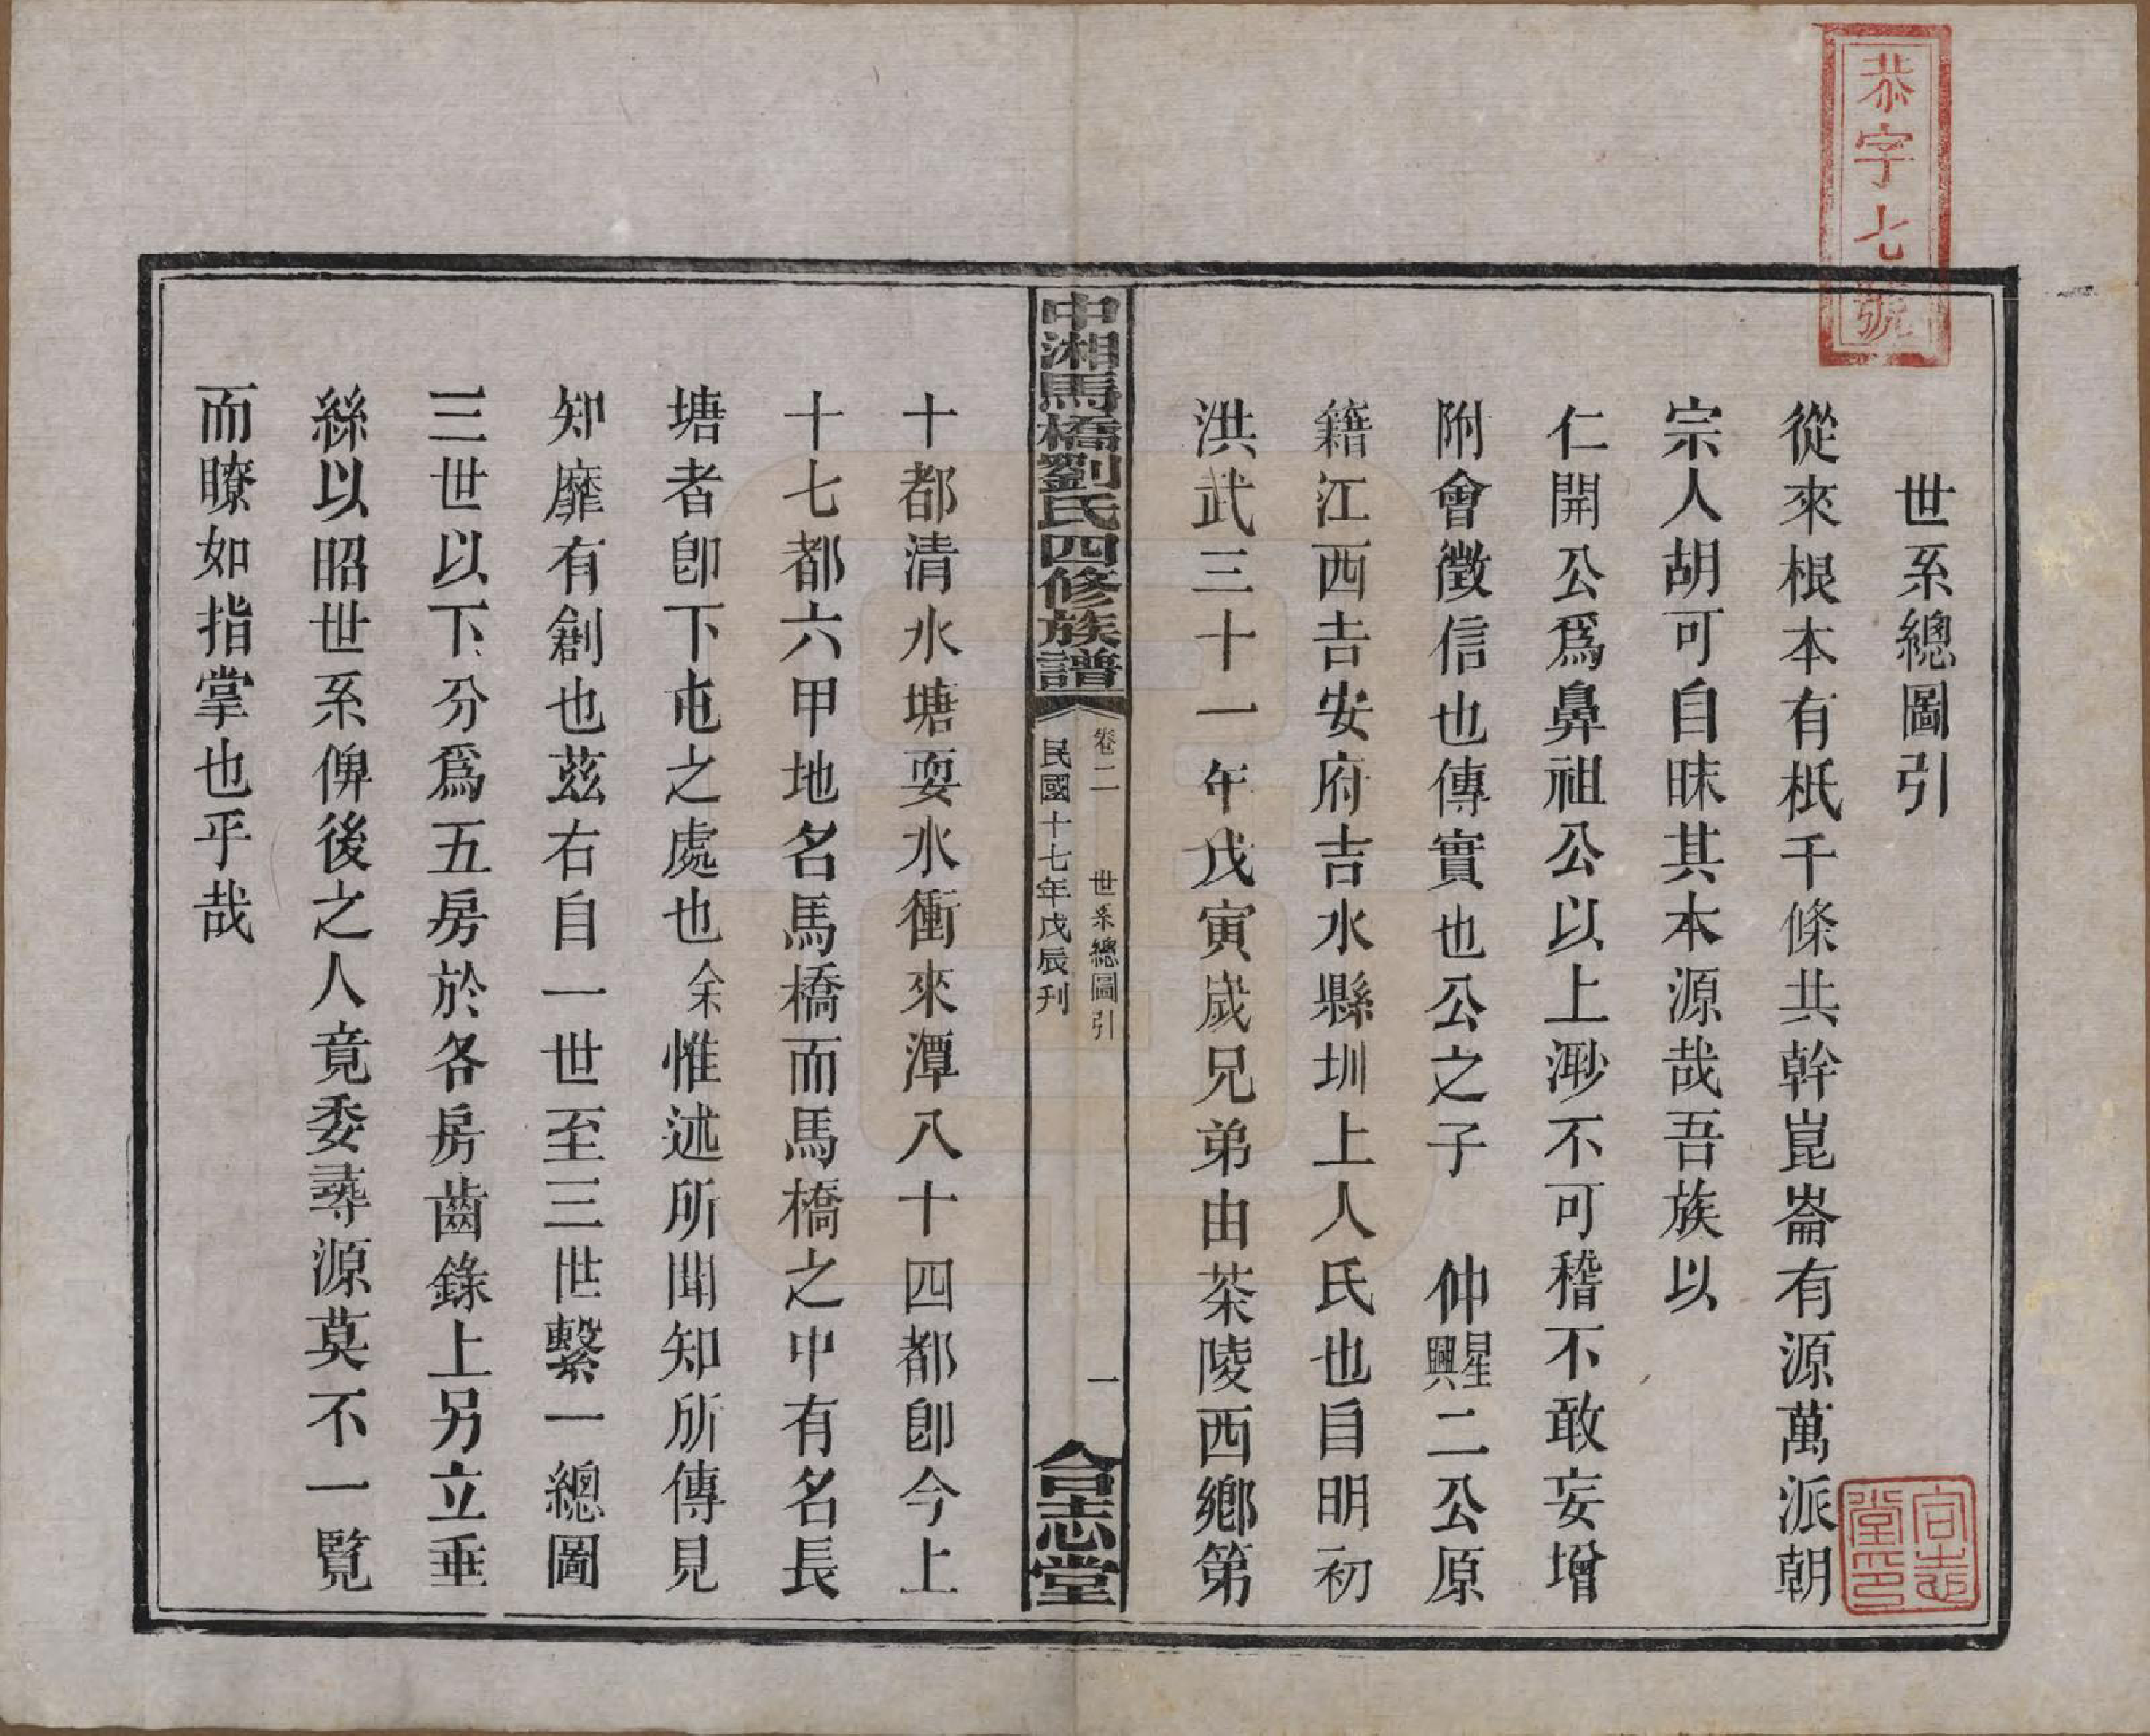 恭字七號
世系總圖引
從來根本有柢千條共幹崑崙有源萬派朝
宗人胡可自昧其本源哉吾族以
仁開公爲鼻祖公以上渺不可稽不敢妄增
附會徵信也傳實也公之子　仲星興二公原
籍江西吉安府吉水縣圳上人氏也自明初
洪武三十一年戊寅歲兄弟由茶陵西鄉第
中湘馬橋劉氏四修族譜
卷二　世系總圖引　一
民國十七年戊辰刊
合志堂
十都清水塘耍水衝來潭八十四都卽今上
十七都六甲地名馬橋而馬橋之中有名長
塘者卽下屯之處也余惟述所聞知所傳見
知靡有創也茲右自一世至三世繫一總圖
三世以下分爲五房於各房齒錄上另立垂
絲以昭世系俾後之人竟委尋源莫不一覽
而瞭如指掌也乎哉
合志堂印